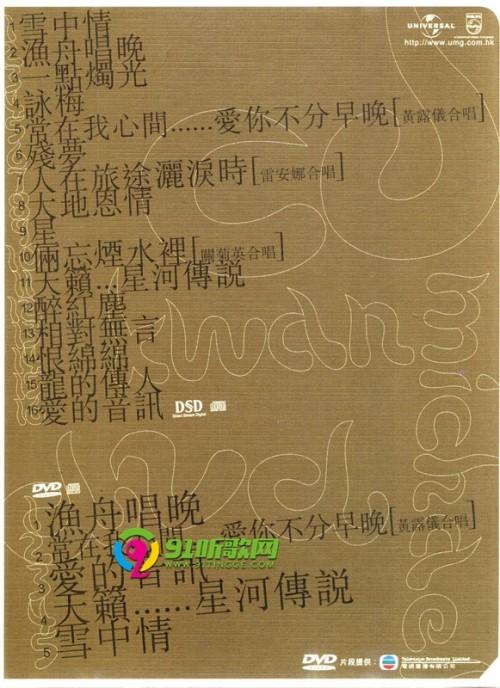 雪中情
UNIVERSAL PHILIPS
http://www.umg.com.hk
2 漁舟唱晚
3 一點燭光
4 詠梅
5 常在我心間......愛你不分早晚[黃露儀合唱]
6 殘夢
7 人在旅途灑淚時[雷安娜合唱]
8 大地恩情
9 星
10 倆忘煙水裡[關菊英合唱]
11 天籟...星河傳説
12 醉紅塵
13 相對無言
14 恨綿綿
15 龍的傳人
16 愛的音訊
DSD
Direct Stream Digital
kwan
michael
DVD
1 漁舟唱晚
2 常在我 間 愛你不分早晚[黃露儀合唱]
91听歌网
www.91TINGGE.COM
3 愛的音訊
4 天籟......星河傳説
5 雪中情
DVD 片段提供：
Television Broadcasts Limited
電視廣播有限公司